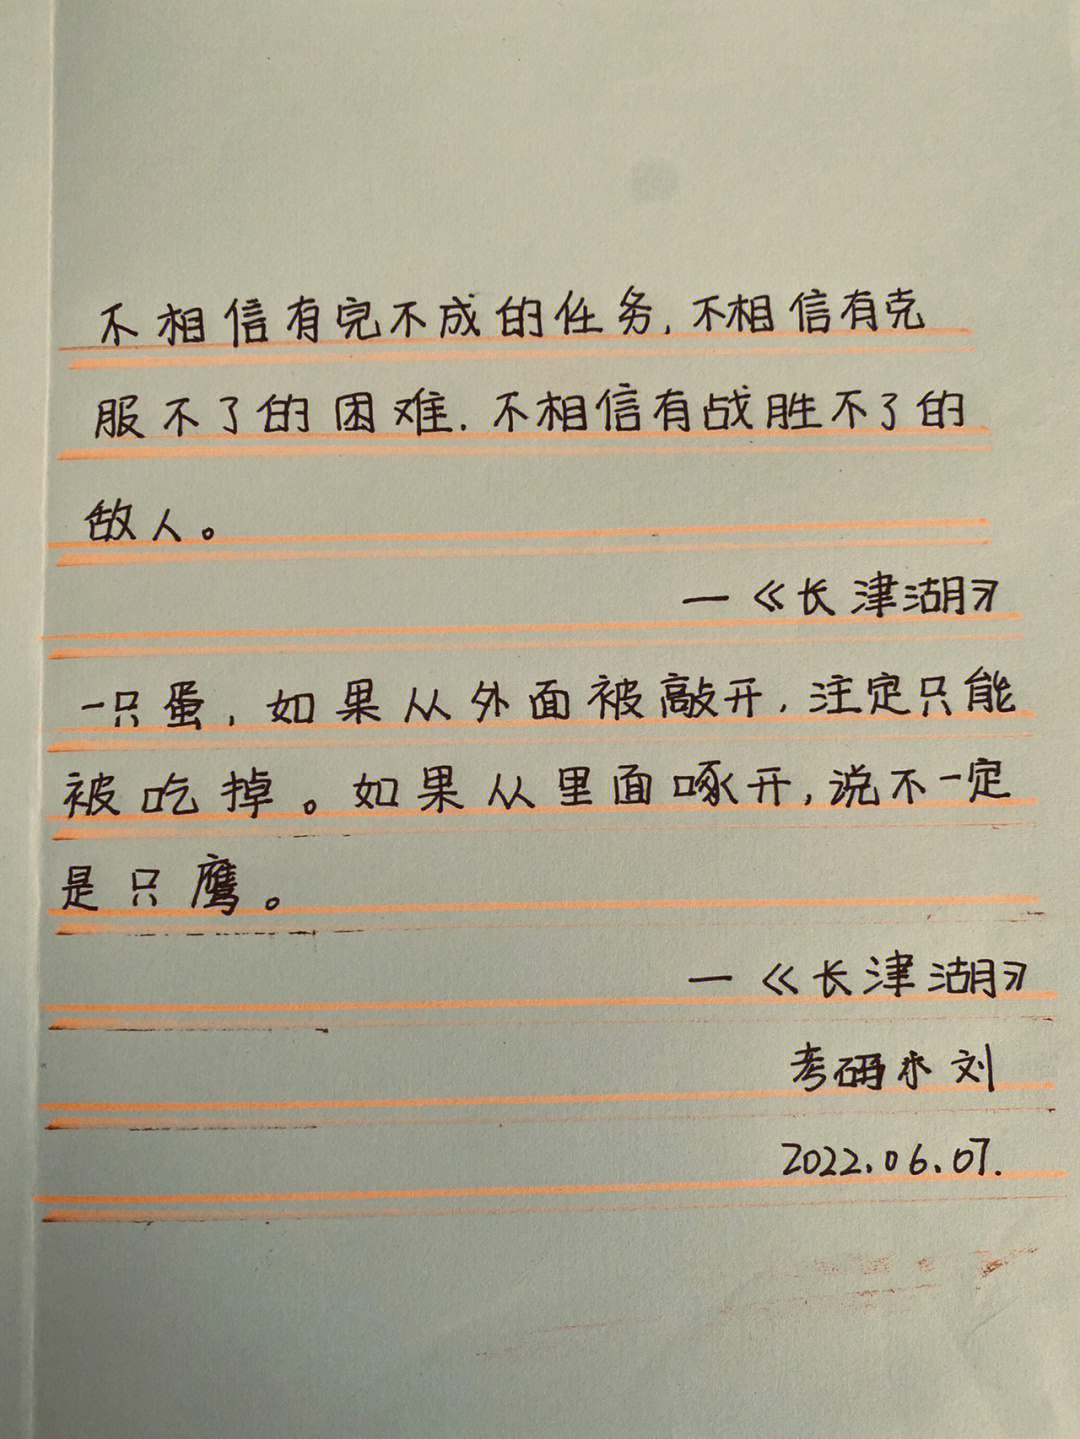 不相信有完不成的任务,不相信有克
服不了的困难.不相信有战胜不了的
敌人。
—《长津湖》
一只蛋,如果从外面被敲开,注定只能
被吃掉。如果从里面啄开,说不一定
是只鹰。
—《长津湖》
考研 刘
2022.06.07.